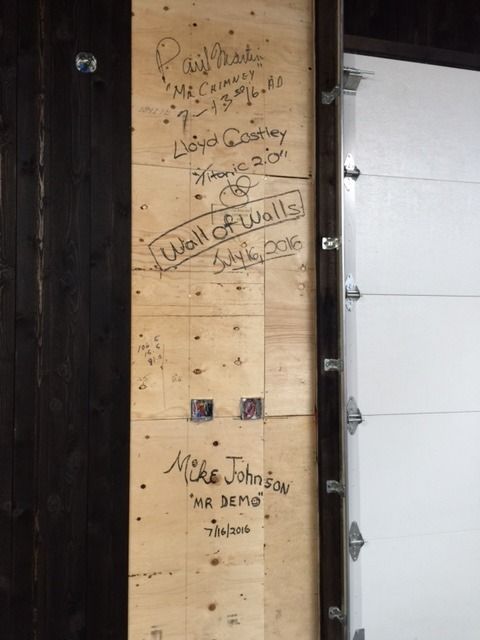 Paul Martin
"MR CHIMNEY"
Lloyd Costley
"Titanic 2.0"
Wall of Walls
July 16, 2016
Mike Johnson
"MR DEMO"
7/16/2016